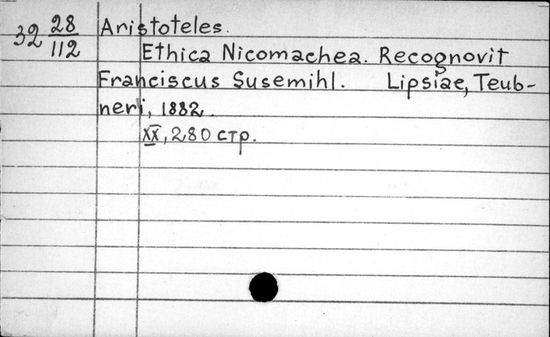 32 28/112 Aristoteles.
Ethica Nicomachea. Recognovit
Franciscus Susemihl. Lipsiae, Teub-
neri, 1882.
XX, 280 стр.